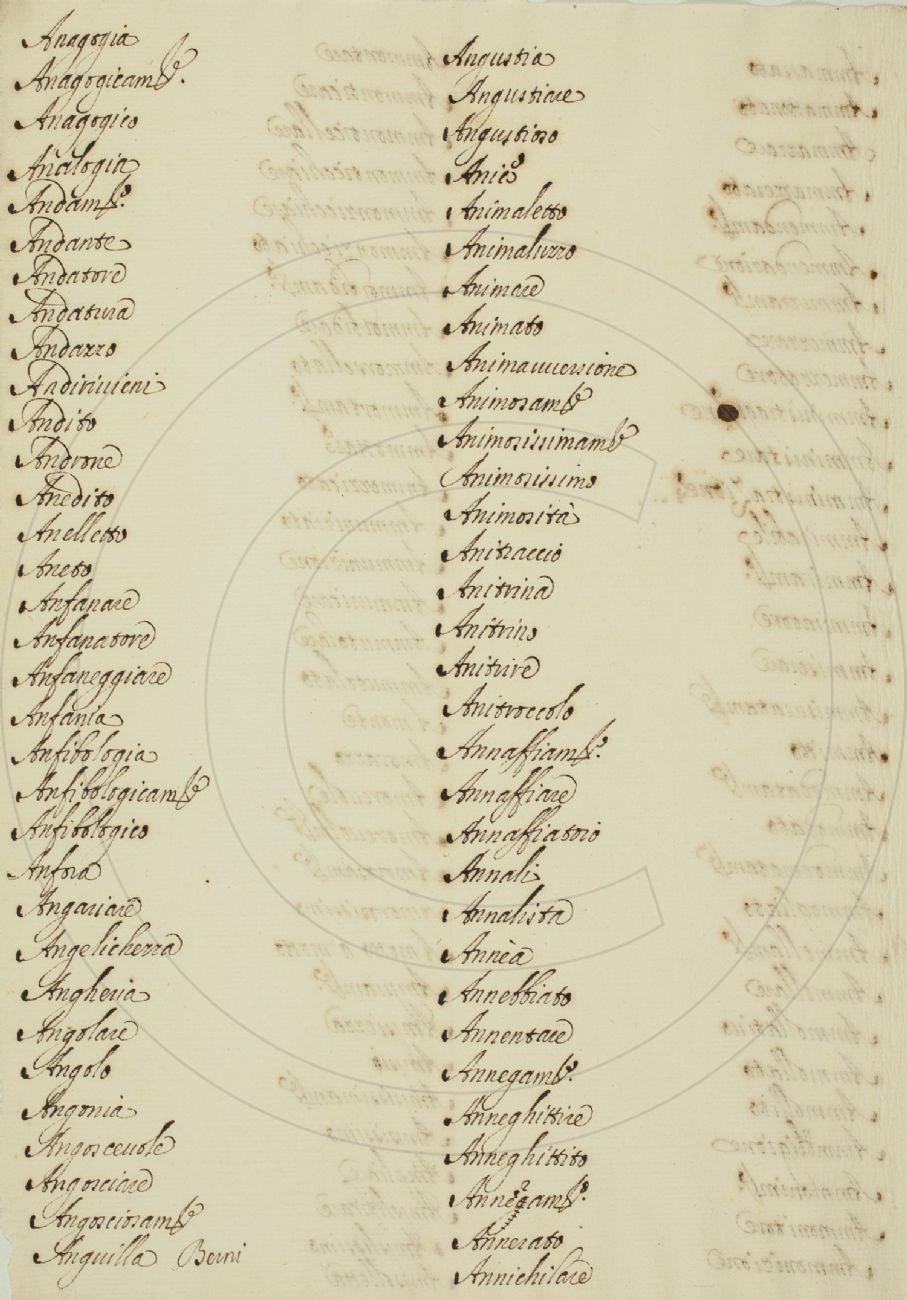 Anagogia
Anagogicam.te
Anagogico
Analogia
Andam.to
Andante
Andatore
Andatura
Andazzo
Andirivieni
Andito
Androne
Anedito
Anelletto
Aneto
Anfanare
Anfanatore
Anfaneggiare
Anfania
Anfibologia
Anfibologicam.te
Anfibologico
Anfora
Angariare
Angelichezza
Angheria
Angolare
Angolo
Angonia
Angoscevole
Angosciare
Angosciosam.te
Anguilla Berni
Angustia
Angustiare
Angustioso
Animaletto
Animaluzzo
Animare
Animato
Animavversione
Animosam.te
Animosissimam.te
Animosissimo
Animosità
Anitraccio
Anitrina
Anitrino
Anitrire
Anitroccolo
Annaffiam.to
Annaffiare
Annaffiatoio
Annali
Annalista
Annèa
Annebbiato
Annentare
Annegam.to
Anneghittire
Anneghittito
Annerato
Annichilare